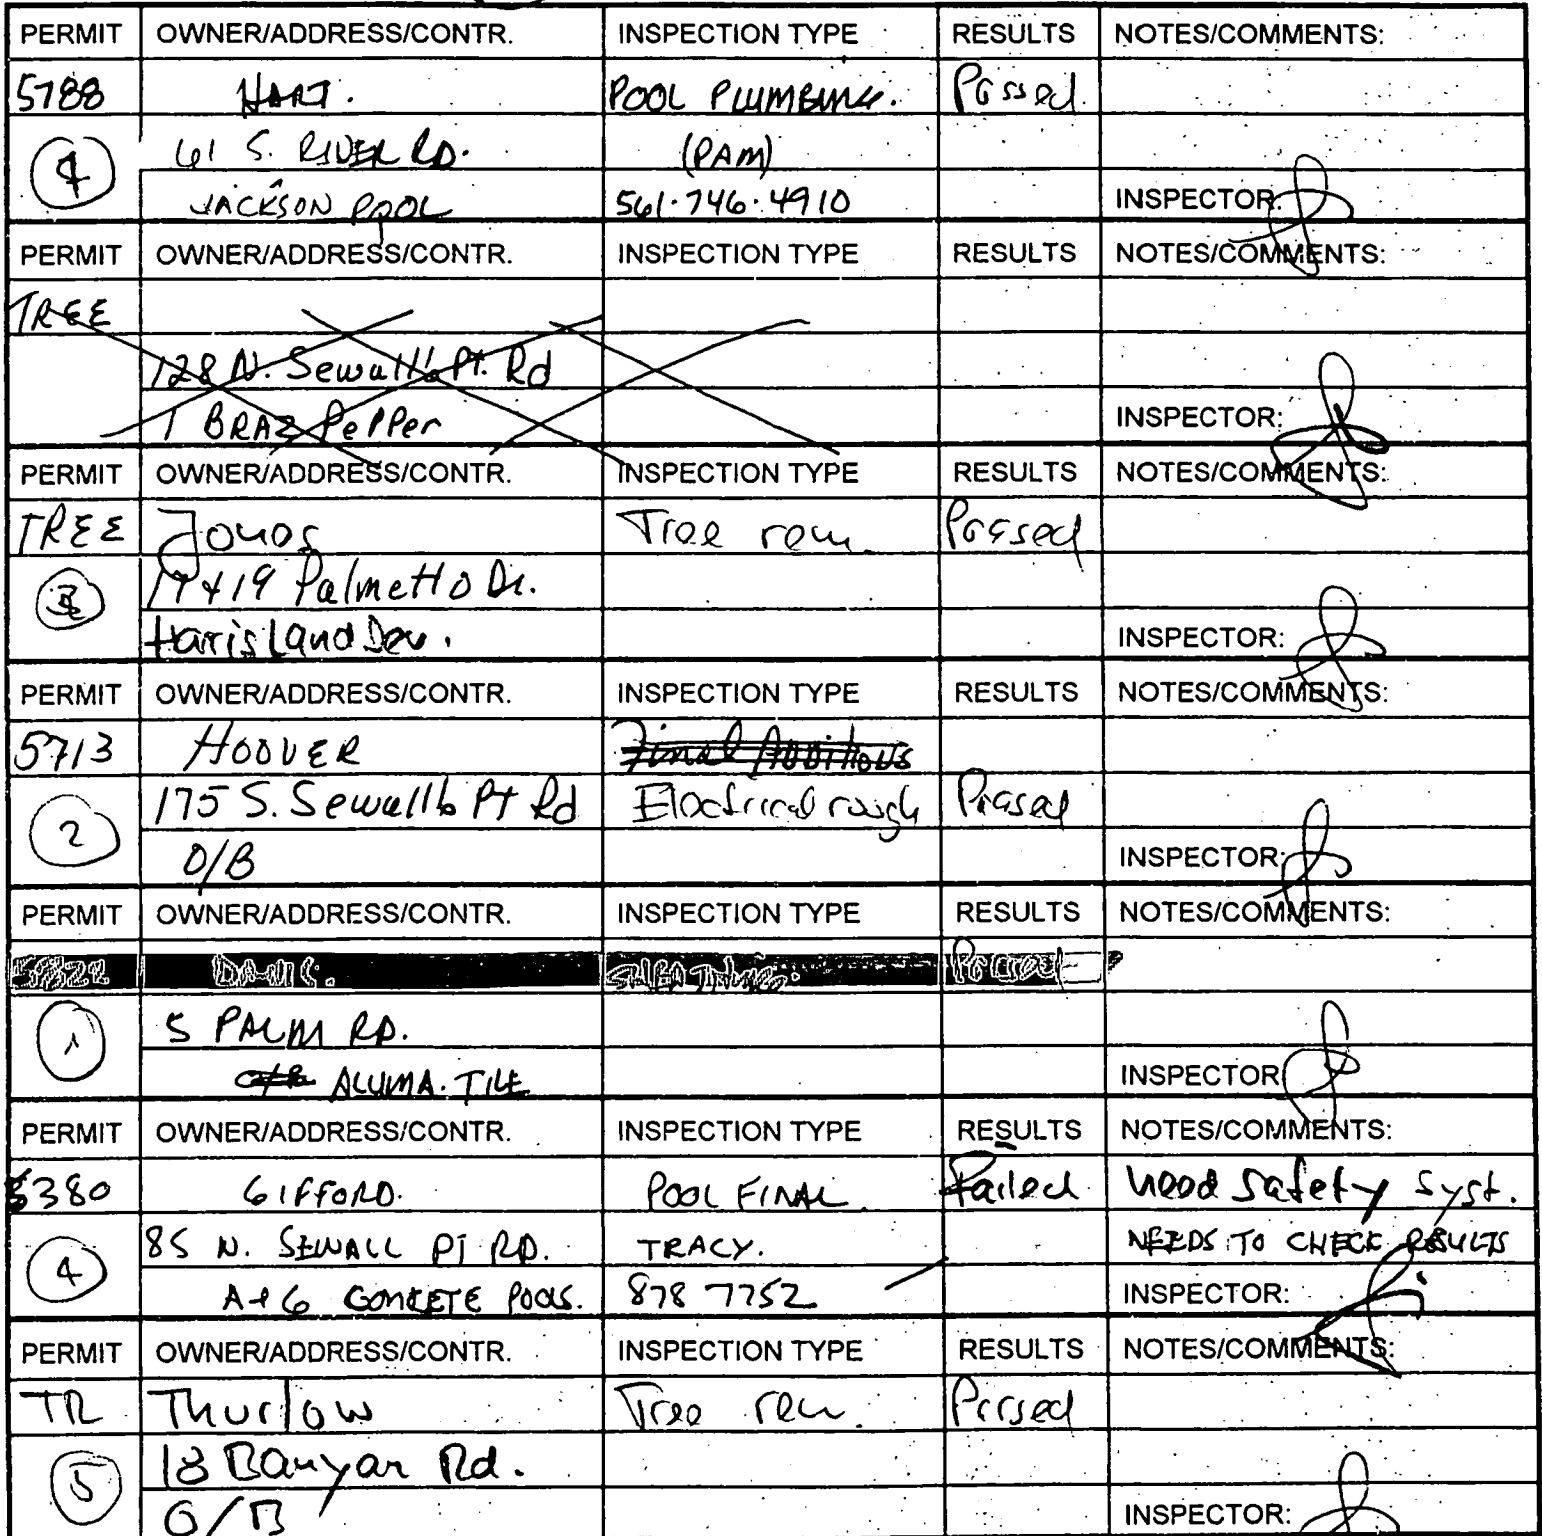 PERMIT OWNER/ADDRESS/CONTR. INSPECTION TYPE RESULTS NOTES/COMMENTS:
5788 HART. POOL PLUMBING. Passed.
61 S. RIVER RD. (PAM)
4
JACKSON POOL 561.746.4910 INSPECTOR:
PERMIT OWNER/ADDRESS/CONTR. INSPECTION TYPE RESULTS NOTES/COMMENTS:
TREE
128 N. Sewall's Pt. Rd
1 BRAZ PePPer INSPECTOR:
PERMIT OWNER/ADDRESS/CONTR. INSPECTION TYPE RESULTS NOTES/COMMENTS:
TREE Jones Tree rem. Passed
17+19 Palmetto Dr.
3
Harris Land Dev. INSPECTOR:
PERMIT OWNER/ADDRESS/CONTR. INSPECTION TYPE RESULTS NOTES/COMMENTS:
5713 HOOVER Final Additions
175 S. Sewall's Pt Rd Electrical rough Passed
2
O/B INSPECTOR:
PERMIT OWNER/ADDRESS/CONTR. INSPECTION TYPE RESULTS NOTES/COMMENTS:
5822 Passed
5 PALM RD.
1
O/B ALUMA.TILE INSPECTOR
PERMIT OWNER/ADDRESS/CONTR. INSPECTION TYPE RESULTS NOTES/COMMENTS:
5380 GIFFORD. POOL FINAL. Failed need safety syst.
85 N. SEWALL PT RD. TRACY. NEEDS TO CHECK RESULTS
4
A+G CONCRETE POOLS. 878 7752 INSPECTOR:
PERMIT OWNER/ADDRESS/CONTR. INSPECTION TYPE RESULTS NOTES/COMMENTS:
TR Thurlow Tree rem. Passed
18 Banyan Rd.
5
O/B INSPECTOR: